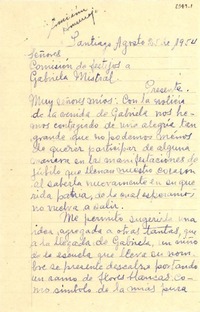 Santiago Agosto 25 de 1954
Señores
Comisión de festejos a
Gabriela Mistral.
Presente.
Muy señores míos: Con la noticia
de la venida de Gabriela nos he-
mos contagiado de una alegría tan
grande que no podemos menos
de querer participar de alguna
manera en las manifestaciones de
júbilo que llenan nuestro corazón
al saberla nuevamente en su que-
rida patria, de la cual esperamos
no vuelva a salir.
Me permito sugerir una
idea agregada a otras tantas, que
a la llegada de Gabriela, un niño
de la escuela que lleve su nom-
bre se presente descalzo portando
un ramo de flores blancas co-
mo símbolo de la más pura